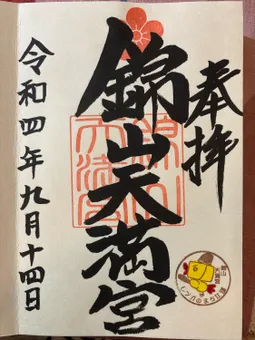 奉拝
錦山天満宮
令和四年九月十四日